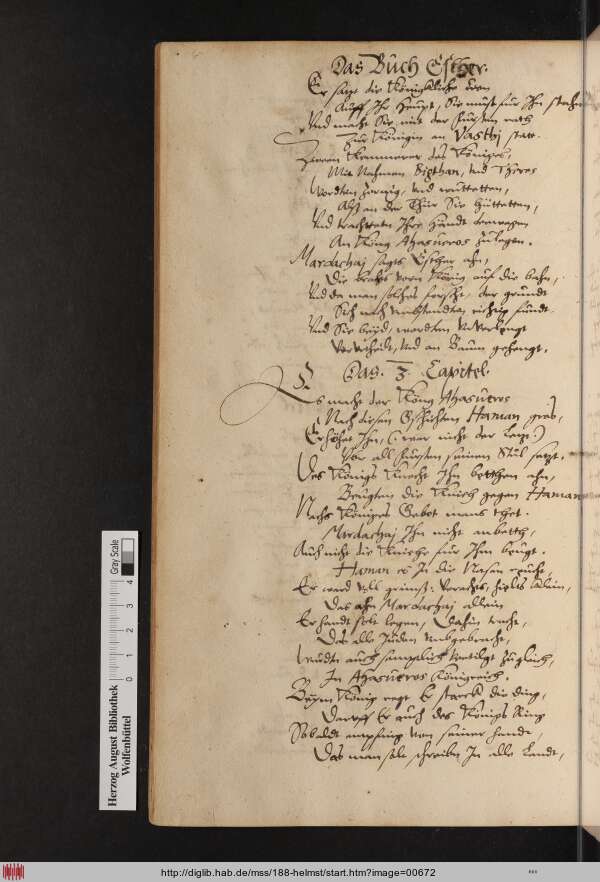 Das Buch Esther.
Er satzt die Königkliche Cron
Auff Ihr Haupt, Sie must für Ihn stehn
Vnd macht Sie mit der Fursten rath
Zur Königin an Vasthj statt.
Zween Kemmerer des Königes,
Mit Nahmen Bigthan, vnd Theres
Wordten zornig, vnd
Alß an der Thür Sie hüttetten,
Vnd trachteten Ihre Händt
An König Ahasueros zulegen.
Mardachaj sagts Esther ahn,
Die brachts vorn König auf die bahn,
Vnd da man solches forscht, der grundt
Sich nach vmbstendten richtig fundt.
Vnd Sie beyd, wordten
Verurtheilt, vnd an Baum gehengt.
Das. 3. Capitel.
Es macht der König Ahasueros
Nach diesen Gschichten Haman gros,
Erhöhet Ihn, (: war nicht der Letzt :)
Vor all Fursten seinen Stul satzt.
Des Königs Knecht Ihn betthen ahn,
Beugten die Kniech gegen Haman
Nachs Königes Gebot mans thet.
Mardachaj Ihn nicht anbetth,
Auch nicht die Kniehe für Ihm beugt.
Haman es In die Nasen reucht,
Er ward vol grimß: verachts, hielts klein,
Das ahn Mardachaj allein
Er handt solt legen, Dahin tracht,
Das alle Juden vmbgebracht,
Wurdtn auch sämptlich vertilgt zugleich,
In Ahasueros Königreich.
Beym König regt Er starck die ding,
Darauff Er auch des Königs Ring
Sobaldt empfieng von seiner Handt,
Das man solt schreiben In alle Landt,
Gray Scale
0 1 2 3 4
Herzog August Bibliothek
Wolfenbüttel
http://diglib.hab.de/mss/188-helmst/start.htm?image=00672